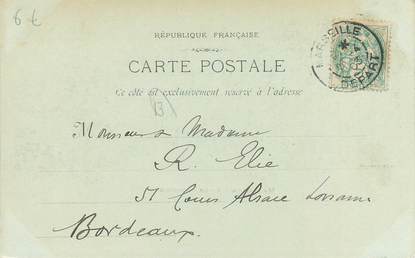 6 €
RÉPUBLIQUE FRANÇAISE
CARTE POSTALE
Ce côté est exclusivement réservé à l'adresse
MARSEILLE
DÉPART
13
Monsieur & Madame
R. Elie
51 Cours Alsace Lorraine
Bordeaux.